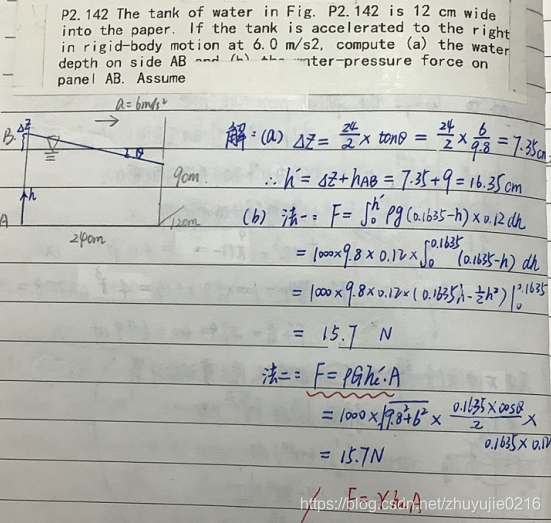 P2.142 The tank of water in Fig. P2.142 is 12 cm wide
into the paper. If the tank is accelerated to the right
in rigid-body motion at 6.0 m/s2, compute (a) the water
depth on side AB and (b) the water-pressure force on
panel AB. Assume
a=6m/s²
B
ΔZ
θ
9cm
h
A
12cm
24cm
解:(a) ΔZ = 24/2 × tanθ = 24/2 × 6/9.8 = 7.35cm
∴ h' = ΔZ + hAB = 7.35+9 = 16.35cm
(b) 法一: F = ∫₀^h' ρg(0.1635-h) × 0.12 dh
= 1000×9.8×0.12×∫₀^0.1635 (0.1635-h) dh
= 1000×9.8×0.12×(0.1635h - ½h²)|₀^0.1635
= 15.7 N
法二: F = ρGhc'·A
= 1000×√(9.8²+6²) × (0.1635×cosθ)/2 ×
0.1635×0.12
= 15.7N
https://blog.csdn.net/zhuyujie0216